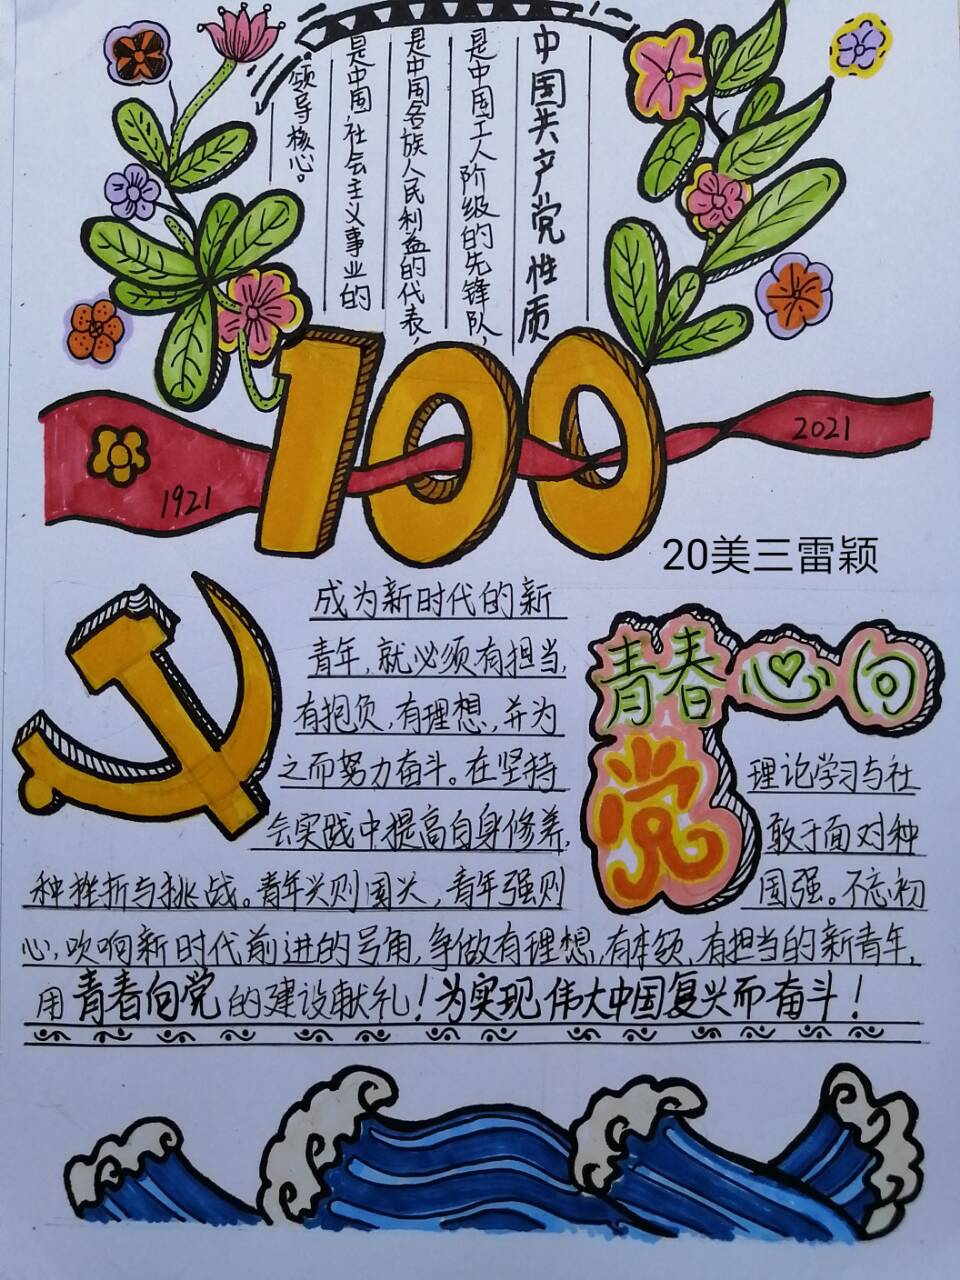 中国共产党性质
是中国工人阶级的先锋队，
是中国各族人民利益的代表，
是中国社会主义事业的
领导核心。
100
1921
2021
20美三雷颖
青春心向
党
成为新时代的新
青年，就必须有担当，
有抱负，有理想，并为
之而努力奋斗。在坚持
理论学习与社
会实践中提高自身修养，
敢于面对种
种挫折与挑战。青年兴则国兴，青年强则
国强。不忘初
心，吹响新时代前进的号角，争做有理想，有本领，有担当的新青年，
用青春向党的建设献礼！为实现伟大中国复兴而奋斗！